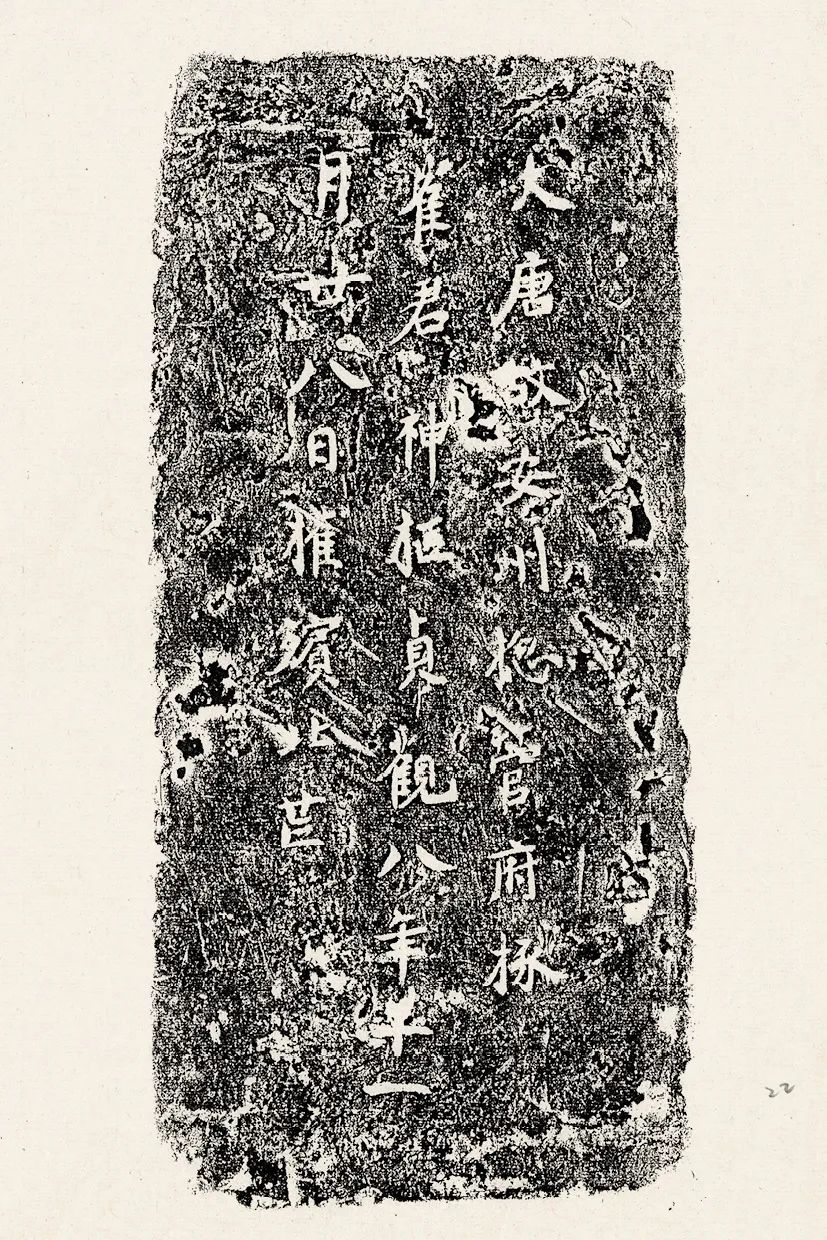 大唐故安州揔管府掾
崔君神柩貞觀八年十一
月廿八日權殯此芒
22